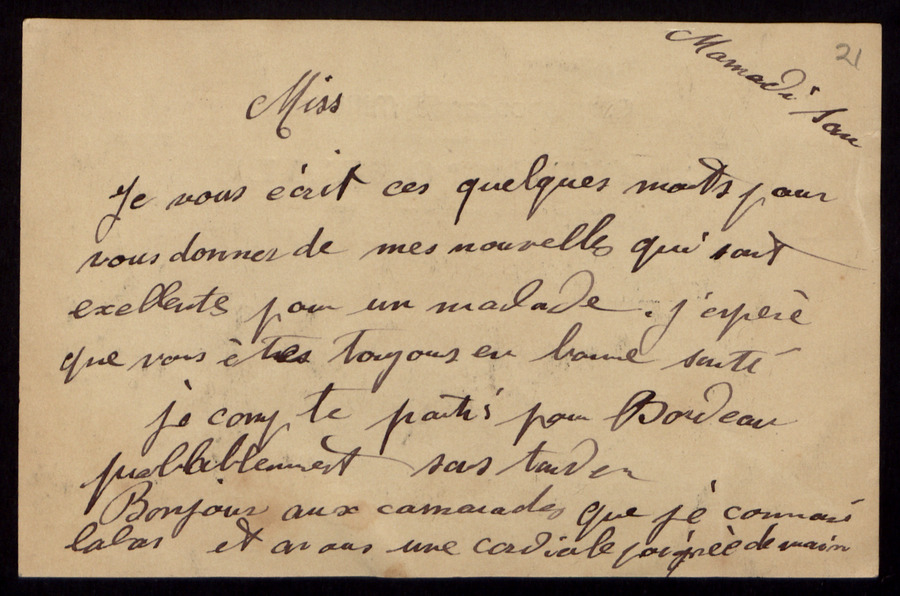 21
Mamadi Sau
Miss
Je vous écrit ces quelques mots pour
vous donner de mes nouvelles qui sont
exellente pour un malade. j'espère
que vous êtes toujours en bonne santé
jè compte partir pour Bordeau
probablement sans tarder
Bonjour aux camarades que jé connais
labas et a vous une cordiale poignèè de main